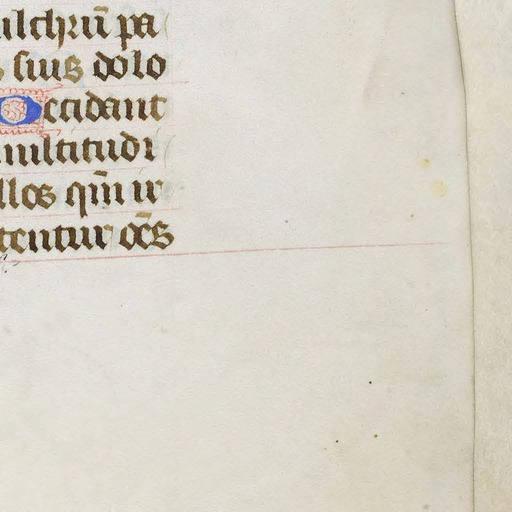 ulchrū pa
s suis dolo
Decidant
multitudi
llos qm̄ ir
tentur oēs